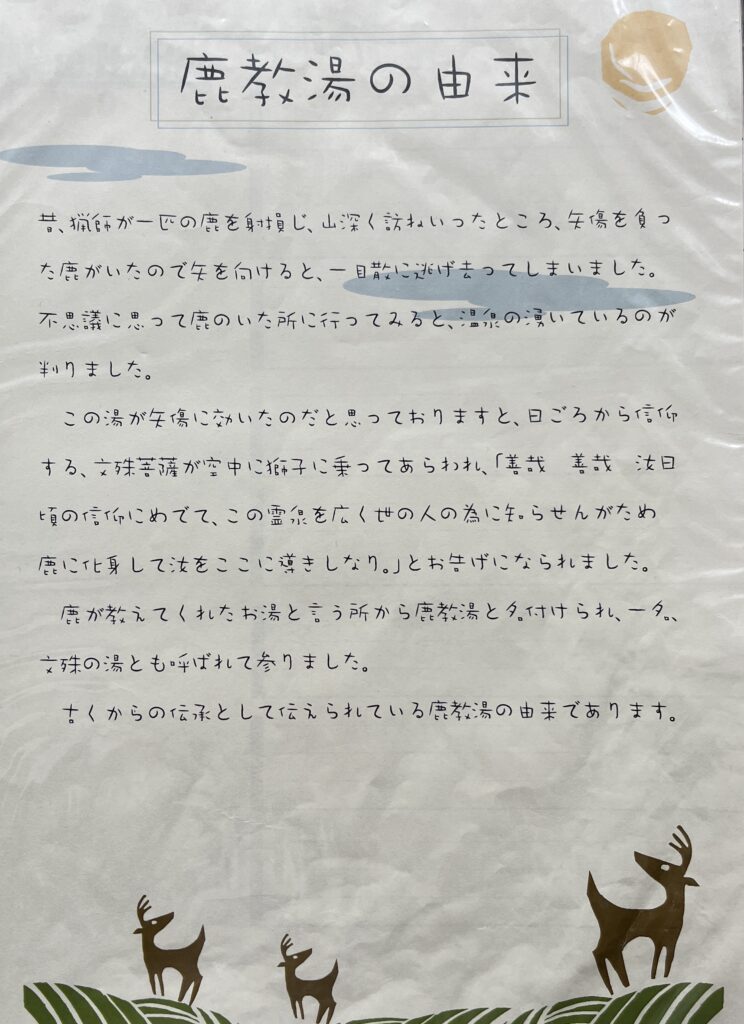 鹿教湯の由来
昔、猟師が一匹の鹿を射損じ、山深く訪ねいったところ、矢傷を負っ
た鹿がいたので矢を向けると、一目散に逃げ去ってしまいました。
不思議に思って鹿のいた所に行ってみると、温泉の湧いているのが
判りました。
この湯が矢傷に効いたのだと思っておりますと、日ごろから信仰
する、文殊菩薩が空中に獅子に乗ってあらわれ、「善哉　善哉　汝日
頃の信仰にめでて、この霊泉を広く世の人の為に知らせんがため
鹿に化身して汝をここに導きしなり。」とお告げになられました。
鹿が教えてくれたお湯と言う所から鹿教湯と名付けられ、一名、
文殊の湯とも呼ばれて参りました。
古くからの伝承として伝えられている鹿教湯の由来であります。